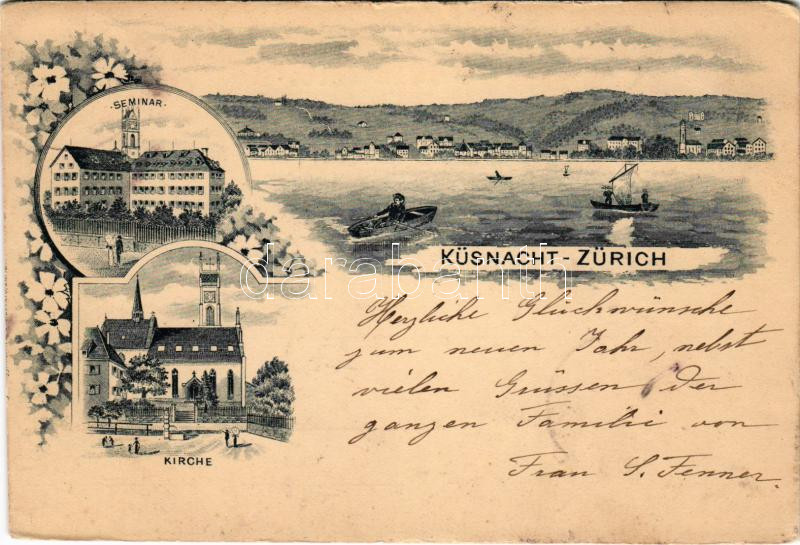 ·SEMINAR·
KÜSNACHT-ZÜRICH
darabanth
Herzliche Glückwünsche
zum neuen Jahr, nebst
vielen Grüssen der
ganzen Familie von
Frau S. Fenner.
KIRCHE